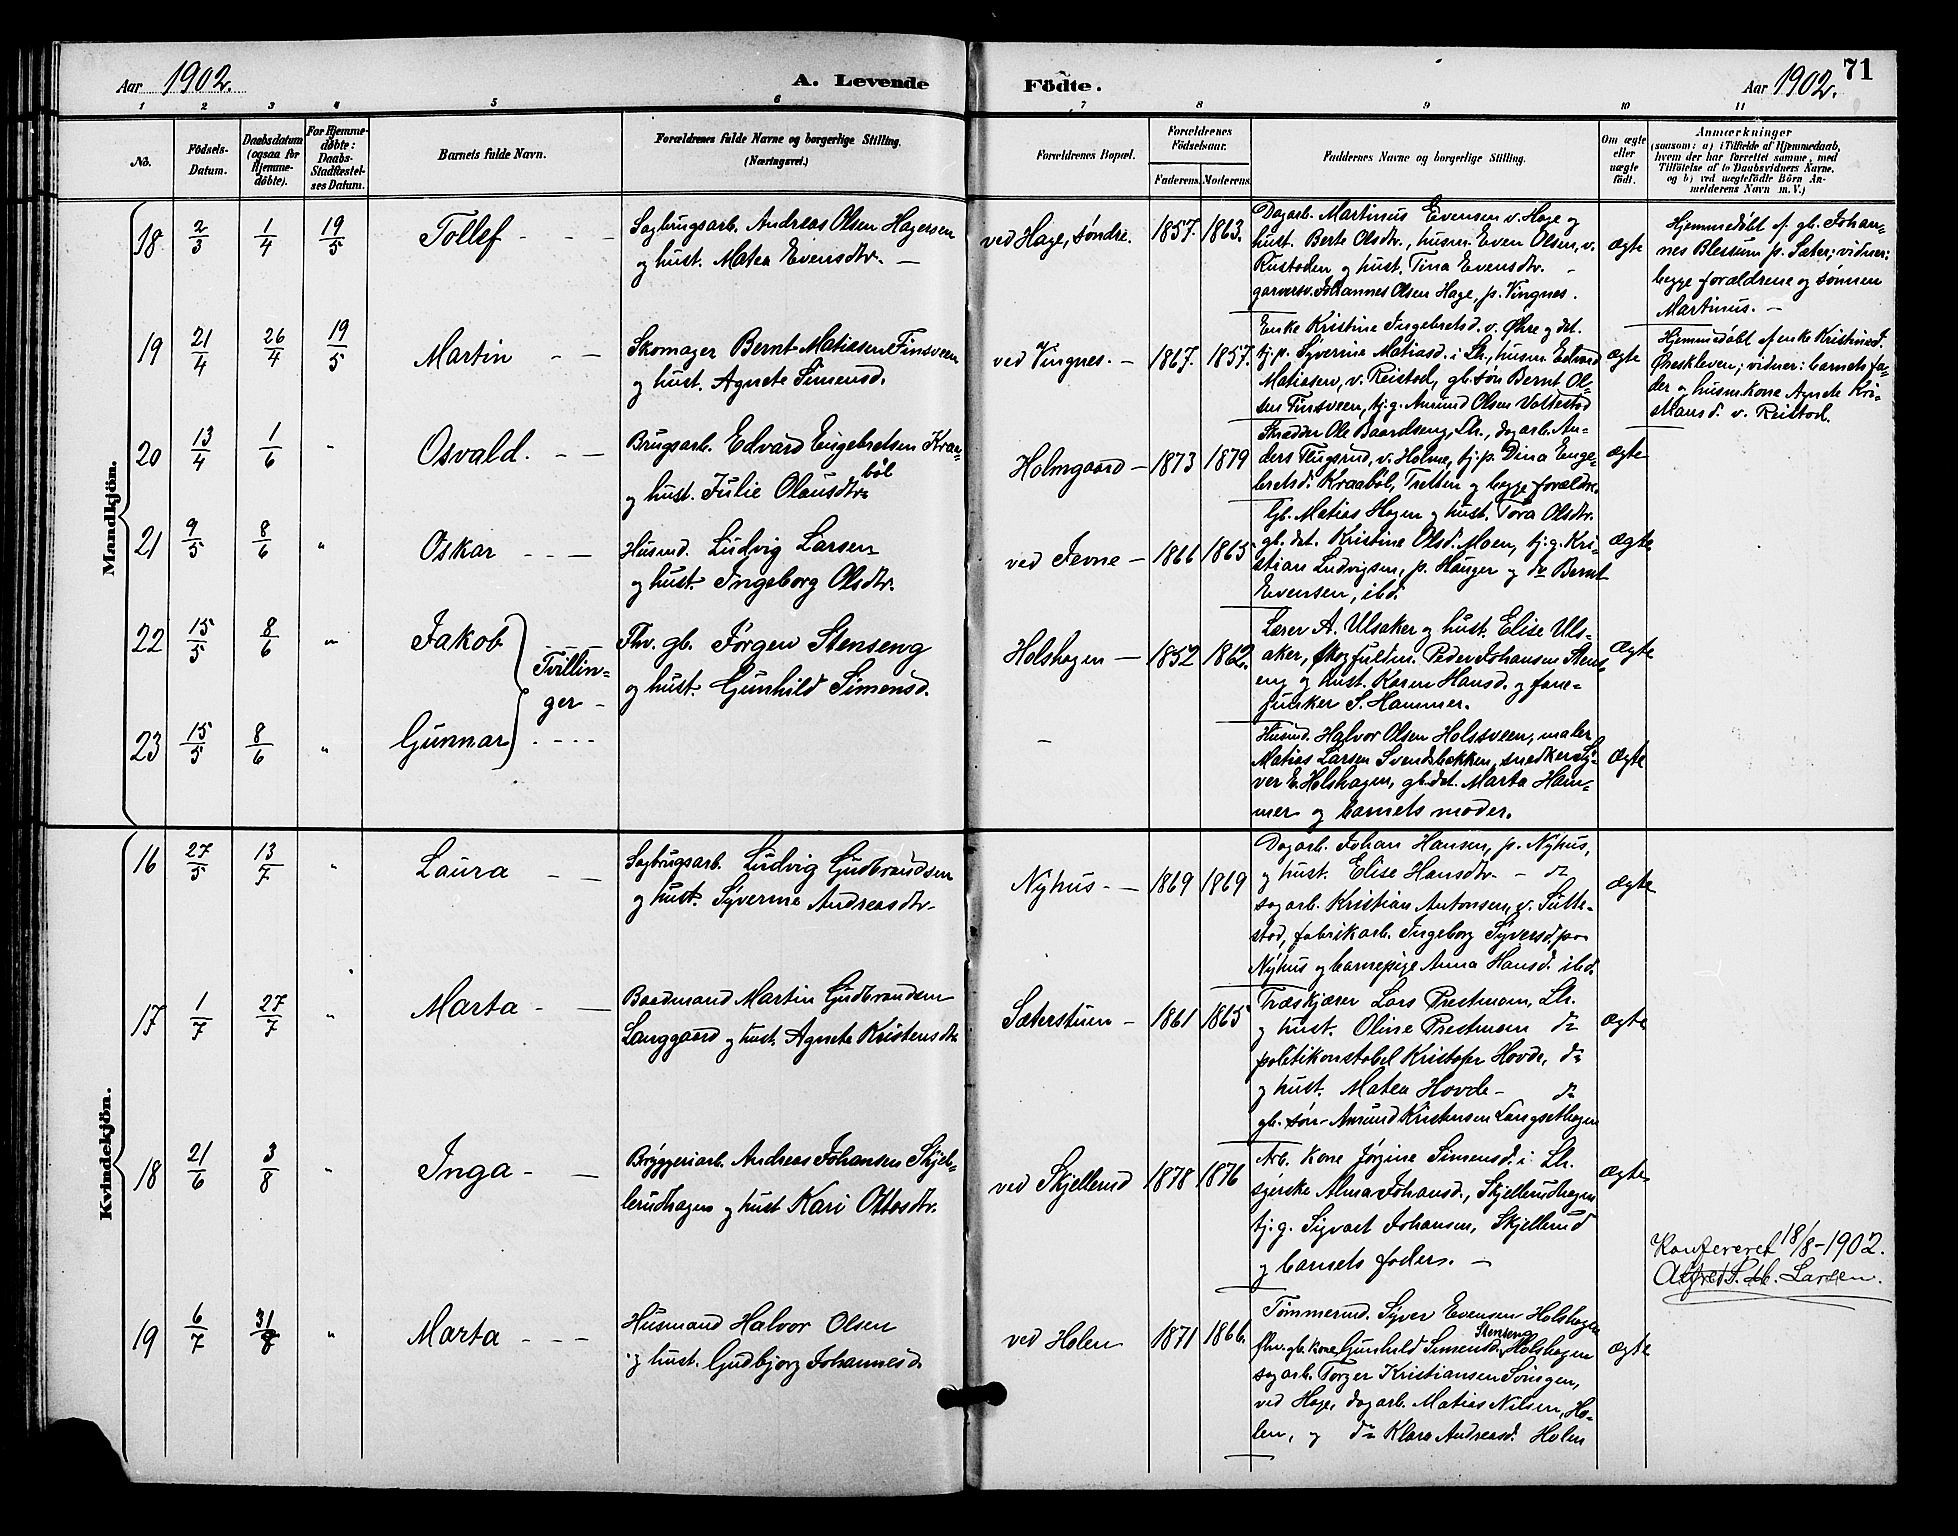 Aar 1902. A. Levende Födte. Aar 1902. 71
1 2 3 4 5 6 7 8 9 10 11
No.
Födsels-
Datum.
Daabsdatum
(ogsaa for
Hjemme-
døbte).
For Hjemme-
døbte:
Daabs-
Stadfæstel-
ses Datum.
Barnets fulde Navn.
Forældrenes fulde Navne og borgerlige Stilling.
(Næringsvei.)
Forældrenes Bopæl.
Forældrenes
Födselsaar.
Faderens. Moderens.
Faddernes Navne og borgerlige Stilling.
Om ægte
eller
uægte
født.
Anmærkninger
(saasom: a) i Tilfælde af Hjemmedaab,
hvem der har forrettet samme, med
Tilföielse af to Daabsvidners Navne.
og b) ved uægtefödte Börn An-
melderens Navn m. V.)
Mandkjön.
18 2/3 1/4 19/5 Tollef - - -
Sagbrugsarb. Andreas Olsen Hagersen
og hust. Matea Evensdtr. -
ved Hage, søndre. 1857. 1863.
Dagarb. Martinus Evensen v. Hage og
hust. Berte Olsdtr., husm. Even Olsen, v.
Rustaden og hust. Tina Evensdtr. -
garversv. Johannes Olsen Hage, p. Vingnes.
ægte
Hjemmedøbt af gb. Johan-
nes Blessum p. Sæter; vidner:
begge forældrene og sønnen
Martinus. -
19 21/4 26/4 19/5 Martin - -
Skomager Bernt Matiasen Finsveen
og hust. Agnete Simensd.
ved Vingnes. - 1867. 1857.
Enke Kristine Ingebretsd. v. Øhre og det.
tj.p. Syverine Matiasd. i Lh., husm. Edvard
Matiasen, v. Reistad, gb. søn Bernt Ol-
sen Finsveen, tj.g. Amund Olsen Vattestad
ægte
Hjemmedøbt af enke Kristine I.
Øreskleven; vidner: barnets fa-
der og husm.kone Agnete Kri-
stiansd. v. Reistad.
20 13/4 1/6 " Osvald. - -
Brugsarb. Edvard Engebretsen Kraa-
bøl
og hust. Julie Olausdtr.
Holmgaard - 1873 1879
Skrædder Ole Baardseng, Lh., dagarb. An-
ders Flugsrud, v. Holme, tj.p. Dina Enge-
bretsd. Kraabøl, Tretten og begge forældre.
ægte
21 9/5 8/6 " Oskar - - -
Husmd. Ludvig Larsen
og hust. Ingeborg Olsdtr.
ved Jevne - 1866 1865
Gb. Matias Hagen og hust. Tora Olsdtr.
gb. det. Kristine Olsd. Moen, tj.g. Kri-
stian Ludvigsen, p. Hauger og do Bernt
Evensen, ibd.
ægte
22 15/5 8/6 " Jakob
Tvillin-
ger -
Fhv. gb. Jørgen Stenseng
og hust. Gunhild Simensd.
Holshagen - 1852 1862.
Lærer A. Ulsaker og hust. Elise Uls-
aker, skogfuldm. Peder Johansen Stens-
eng og hust. Karen Hansd. og fane-
junker S. Hammer.
ægte
23 15/5 8/6 " Gunnar - - - -
-
Husmd. Halvor Olsen Holssveen, maler
Matias Larsen Svendsbakken, snedker Sy-
ver E. Holshagen, gb. det. Marta Ham-
mer og barnets moder.
ægte
Kvindekjön.
16 27/5 13/7 " Laura - -
Sagbrugsarb. Ludvig Gudbrandsen
og hust. Syverine Andreasdtr.
Nyhus - - 1869 1869
Dagarb. Johan Hansen, p. Nyhus,
og hust. Elise Hansdtr. - do
sagarb. Kristian Antonsen, v. Sutte-
stad, fabrikarb. Ingeborg Syversd. paa
Nyhus og barnepige Anna Hansd. ibd.
ægte
17 1/7 27/7 " Marta - -
Baadmand Martin Gudbrandsen
Langgaard og hust. Agnete Kristensdtr.
Sæterstuen - 1861 1865
Træskjærer Lars Prestmoen, Lh.
og hust. Oline Prestmoen do
politikonstabel Kristofer Hovde, do
og hust. Matea Hovde - do
gb. søn Amund Kristensen Langsethagen
ægte
18 21/6 3/8 " Inga - -
Bryggeriarb. Andreas Johansen Skjel-
lerudhagen og hust Kari Ottosdtr.
ved Skjellerud 1878 1876
Arb. kone Jørgine Simensd. i Lh.
syerske Alma Johansd., Skjellerudhagen
tj.g. Sigvart Johansen, Skjellerud
og barnets faders. -
ægte
Konfereret 18/8-1902.
Alfred S. Larsen.
19 6/7 31/8 " Marta - - -
Husmand Halvor Olsen
og hust. Gudbjørg Johannesd.
ved Holen 1871 1866.
Tømmermd. Syver Evensen Holshagen
Stenseng
fhv. gb. kone Gunhild Simensd. Holshagen
sagarb. Torger Kristiansen Svingen,
ved Hage, dagarb. Matias Nilsen, Ho-
len, og do Klara Andreasd. Holen
ægte